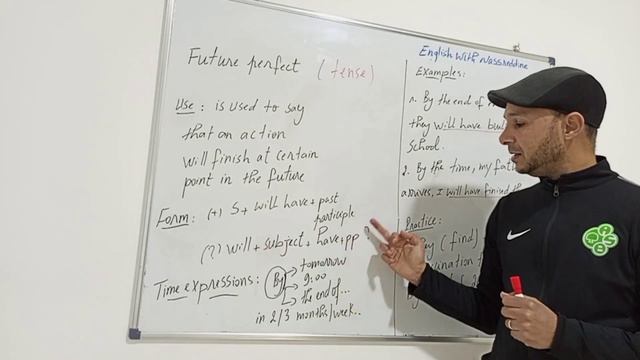 Future perfect (tense)
Use : is used to say
that an action
will finish at certain
point in the future
Form: (+) S + will have + past
participle
(?) will + subject + have + pp ?
Time expressions: By
tomorrow
9:00
the end of...
in 2/3 months/week..
English with Nassreddine
Examples:
1. By the end of
they will have
school.
2. By the time, my
arrives, I will have finished
Practice:
(find)